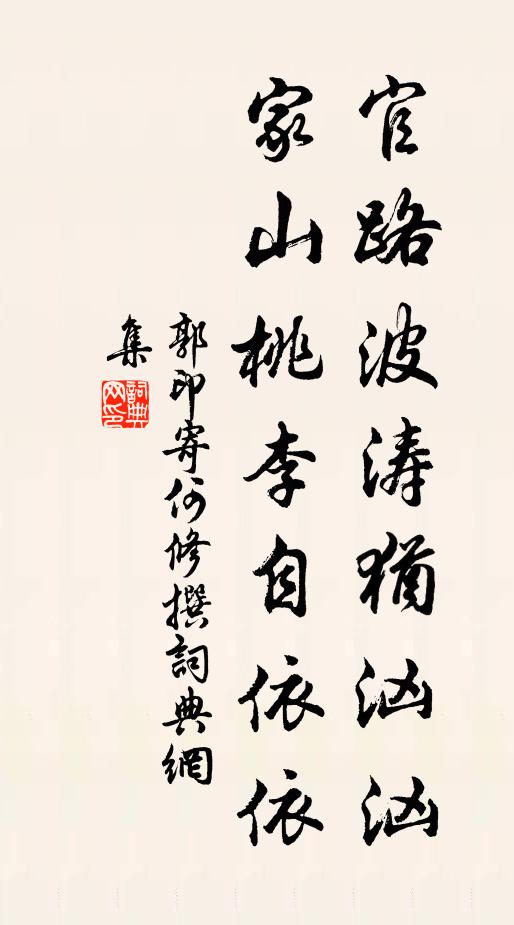 官路波涛猶汹汹
家山桃李自依依
郭印寄何修撰詞典網
集
詞典網印